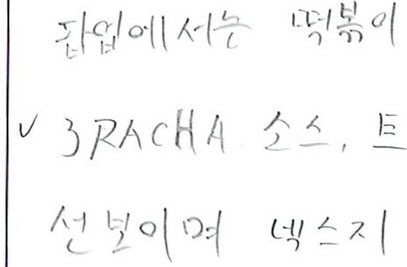 팝업에서는 떡볶이
✓ 3RACHA 소스, 트
선보이며 넥스지